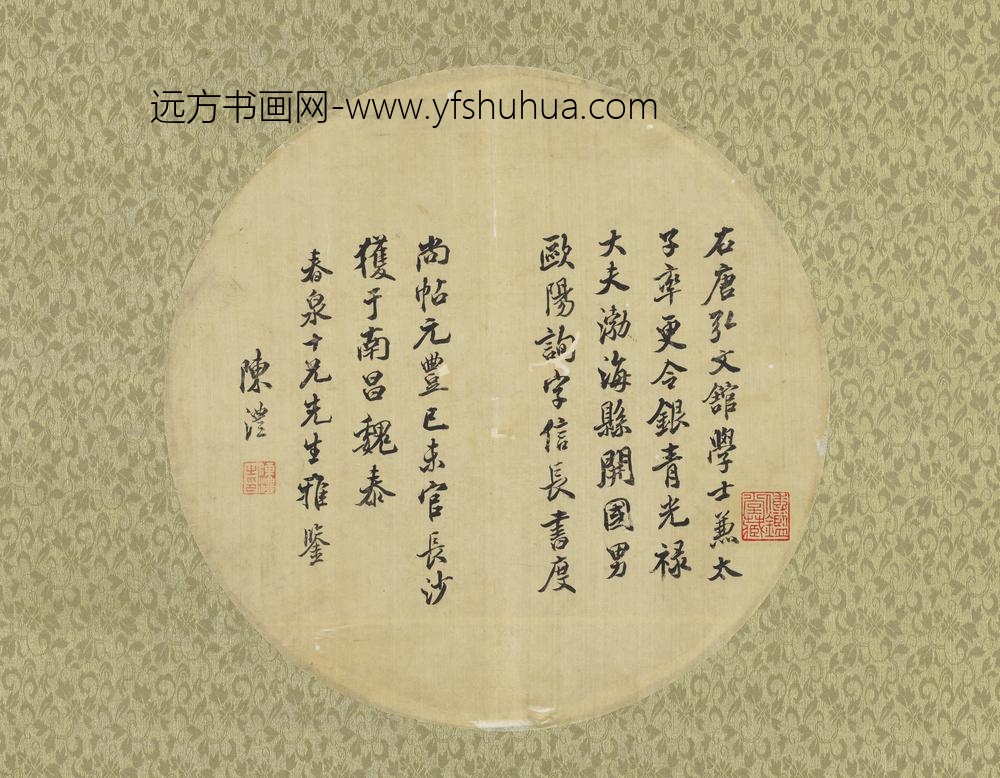 远方书画网-www.yfshuhua.com
右唐弘文館學士兼太
子率更令銀青光禄
大夫渤海縣開國男
歐陽詢字信長書度
尚帖元豐己未官長沙
獲于南昌魏泰
春泉十兄先生雅鑒
陳澧